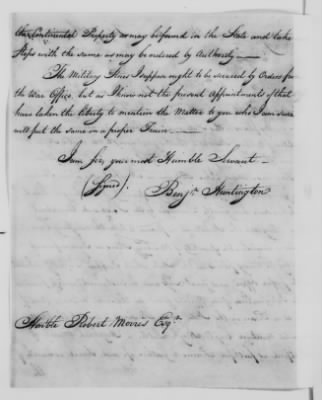 Continental Property as may be found in the State and take
Steps with the same as may be ordered by Authority
The Military Stores I suppose ought to be secured by Orders from
the War Office, but as I know not the present Appointments of that
have taken the liberty to mention the Matter to you who I am sure
will put the same in a proper Train.
I am Sir, your most Humble Servant
(Signed). Benjn. Huntington
Honble Robert Morris Esqr.